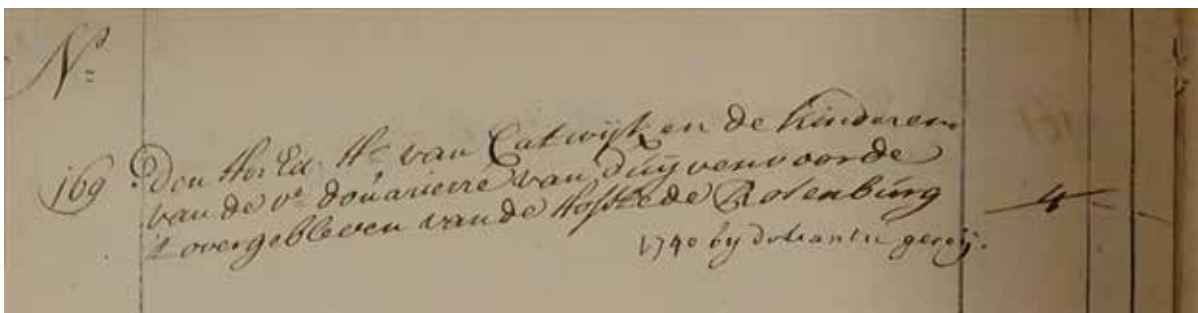 No
169 Den Hor Ed. Hr van Catwijk en de kinderen
van de vr. douariere van Duijvenvoorde
't overgebleven van de Hofstede Rosenburg 4
1740 by